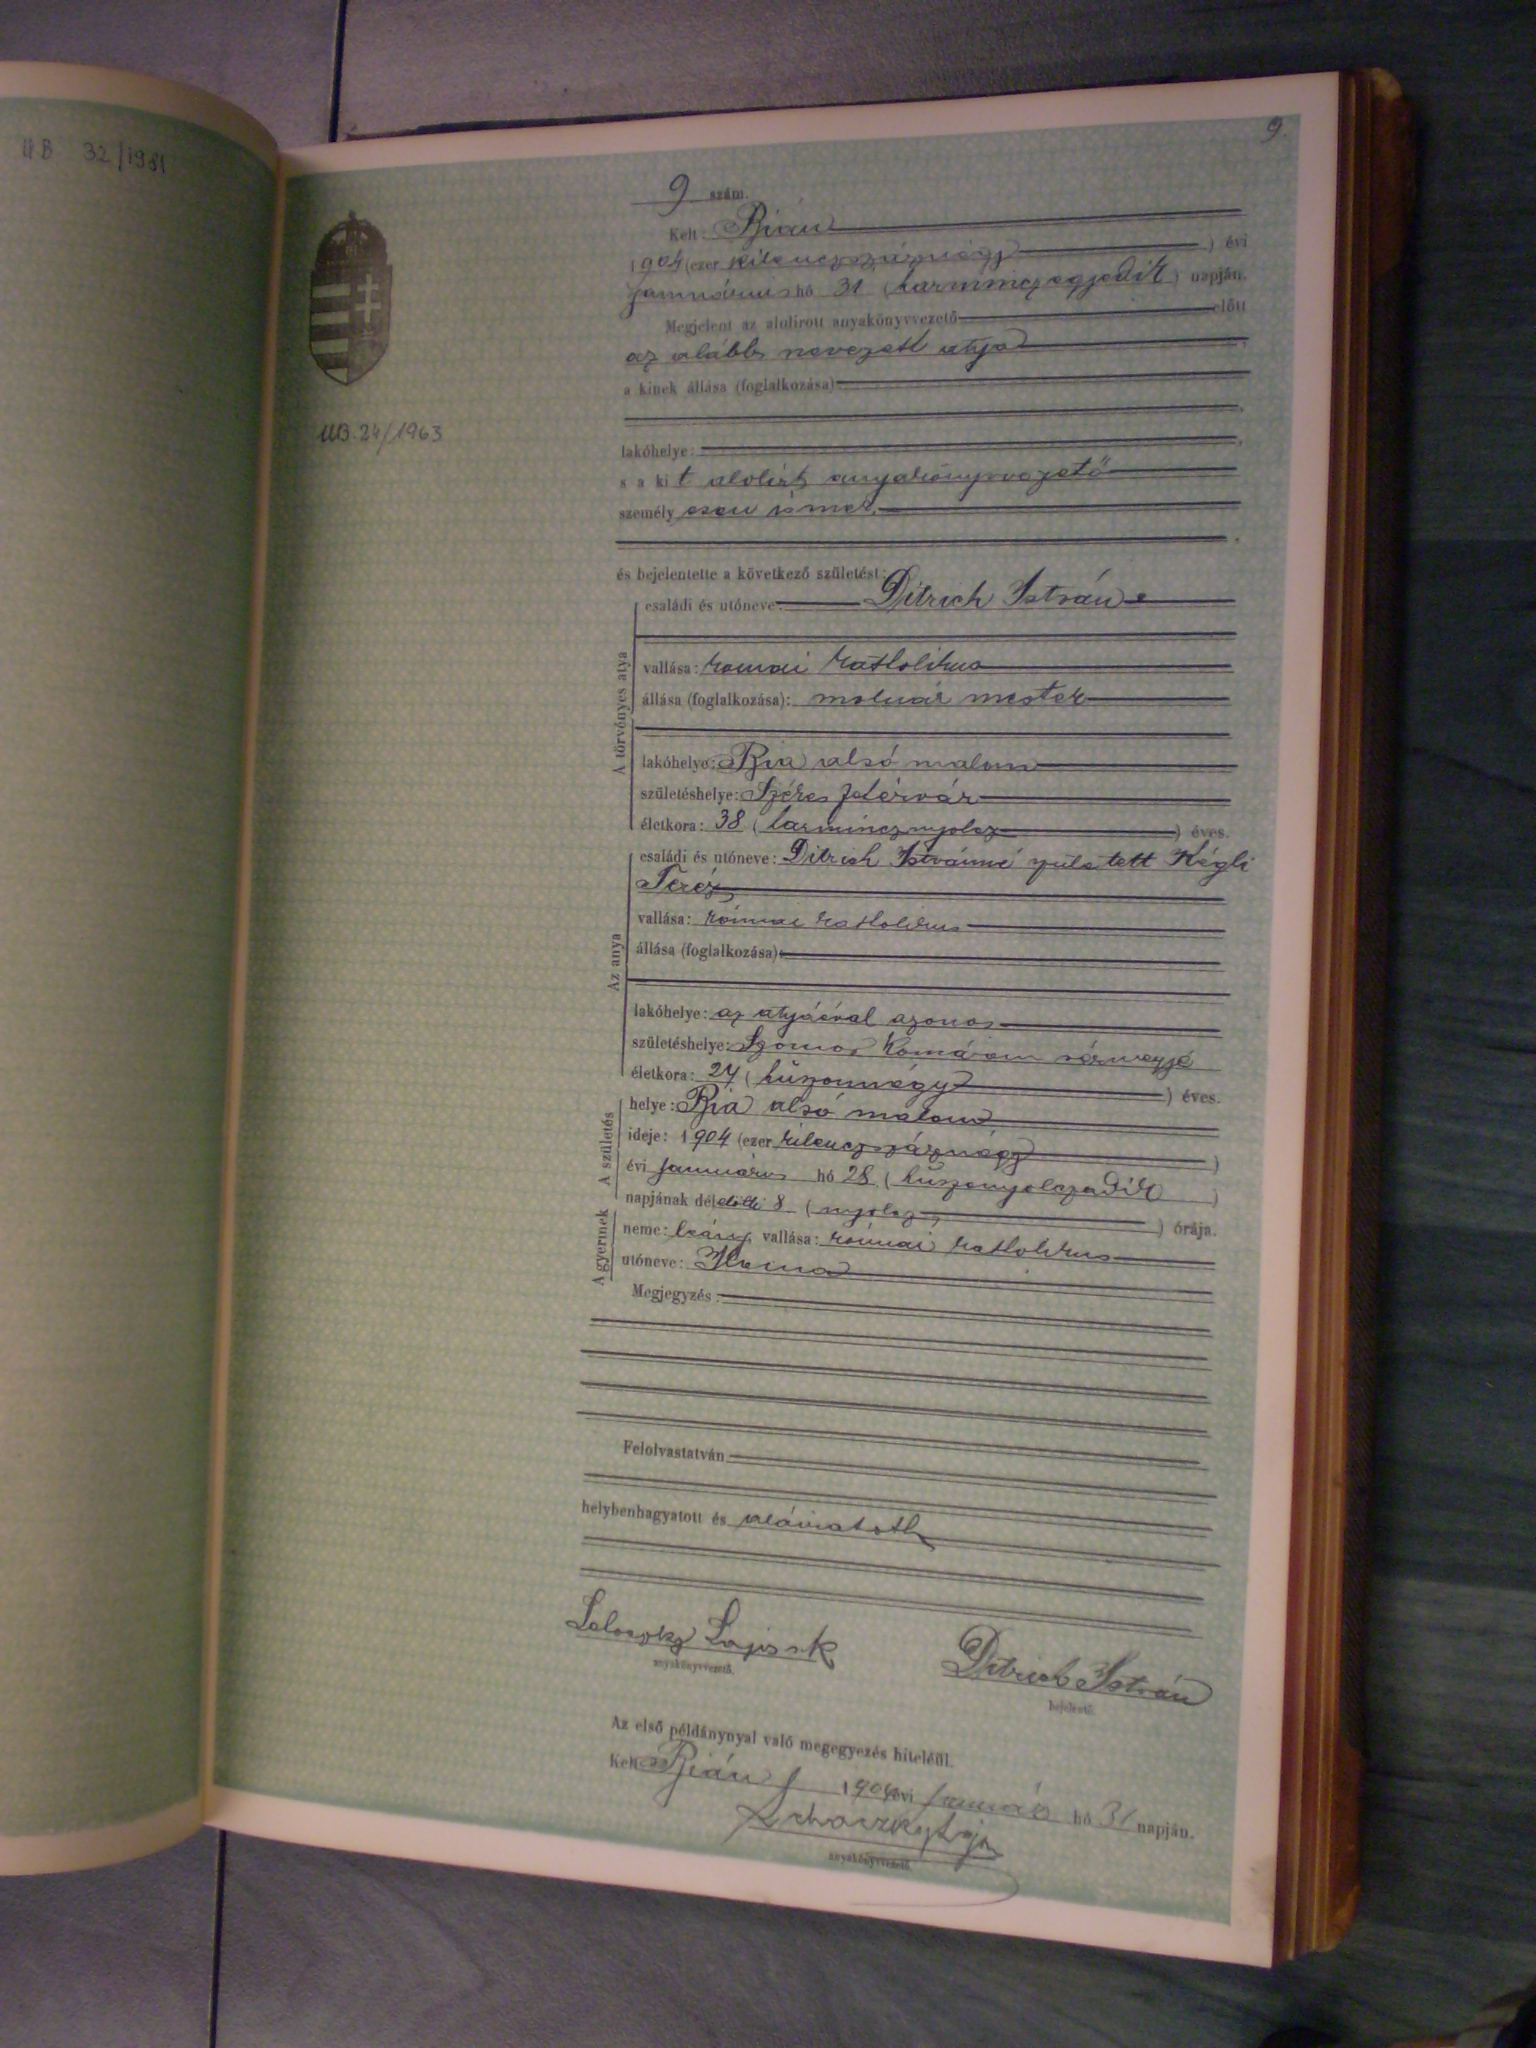 UB 32/1981
9.
9 szám.
Kelt: Bián
1904 (ezer kilenczszáznégy) évi
januárius hó 31 (harminczegyedik) napján.
Megjelent az alulirott anyakönyvvezető előtt
az alább nevezett atya,
a kinek állása (foglalkozása)
lakóhelye:
s a kit alolirt anyakönyvvezető
személyesen ismer.
UB. 24/1963
és bejelentette a következő születést:
A törvényes atya
családi és utóneve: Ditrich István
vallása: romai katholikus
állása (foglalkozása): molnár mester
lakóhelye: Bia alsó malom
születéshelye: Székes fehérvár
életkora: 38 (harmincznyolcz) éves.
Az anya
családi és utóneve: Ditrich Istvánné született Kégli
Teréz
vallása: római katholikus
állása (foglalkozása):
lakóhelye: az atyáéval azonos
születéshelye: Szomor Komárom vármegye
életkora: 24 (húszonnégy) éves.
A születés
helye: Bia alsó malom
ideje: 1904 (ezer kilenczszáznégy)
évi januárius hó 28 (húszonyolczadik)
napjának délelőtti 8 (nyolcz) órája.
A gyermek
neme: leány, vallása: római katholikus
utóneve: Ilona
Megjegyzés:
Felolvastatván
helybenhagyatott és aláiratott
Lajos
anyakönyvvezető.
Ditrich István
bejelentő.
Az első példánynyal való megegyezés hiteléül.
Kelt Bián 1904 évi január hó 31 napján.
anyakönyvvezető